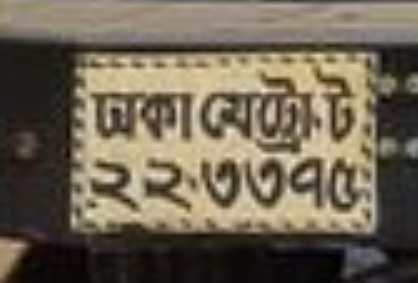 ঢাকা মেট্রো-ট
২২-৩৩৭৫